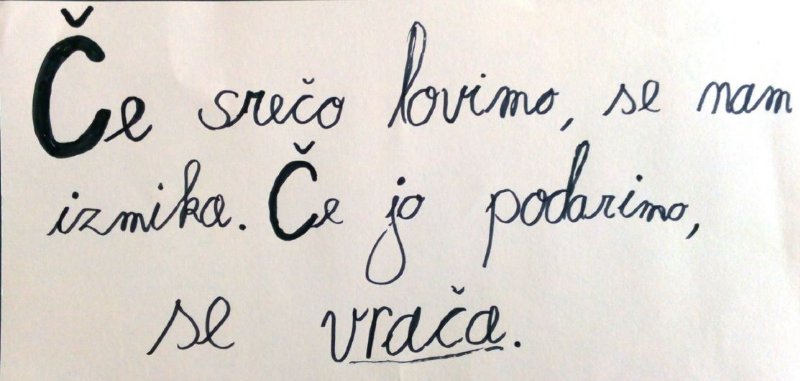 Če srečo lovimo, se nam
izmika. Če jo podarimo,
se vrača.